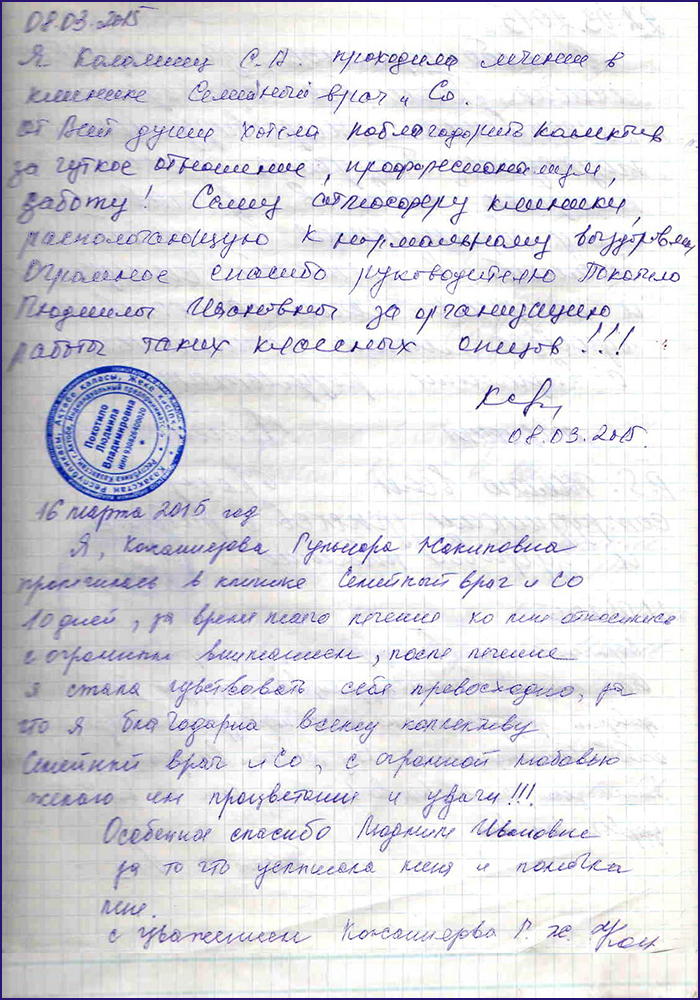 08.03.2015
Я Коломиец С.А. проходила лечение в
клинике Семейный врач и Со.
От всей души хотела поблагодарить коллектив
за чуткое отношение, профессионализм,
заботу! Саму атмосферу клиники,
распологающую к нормальному выздоровлен
Огромное спасибо руководителю Покотило
Людмилы Ивановны за организацию
работы таких классных спецов!!!
08.03.2015.
Покотило
Людмила
Владимировна
16 марта 2015 год
Я, Кожашиерова Гульнора Накиповна
пролечилась в клинике Семейный врач и СО
10 дней, за время моего лечения ко мне относились
с огромным вниманием, после лечения
я стала чувствовать себя превосходно, за
что я благодарна всему коллективу
Семейный врач и Со, с огромной любовью
желаю им процветания и удачи!!!
Особенное спасибо Людмиле Ивановне
за то что услышала меня и помогла
мне.
с уважением Кожашиерова Г. Ж.